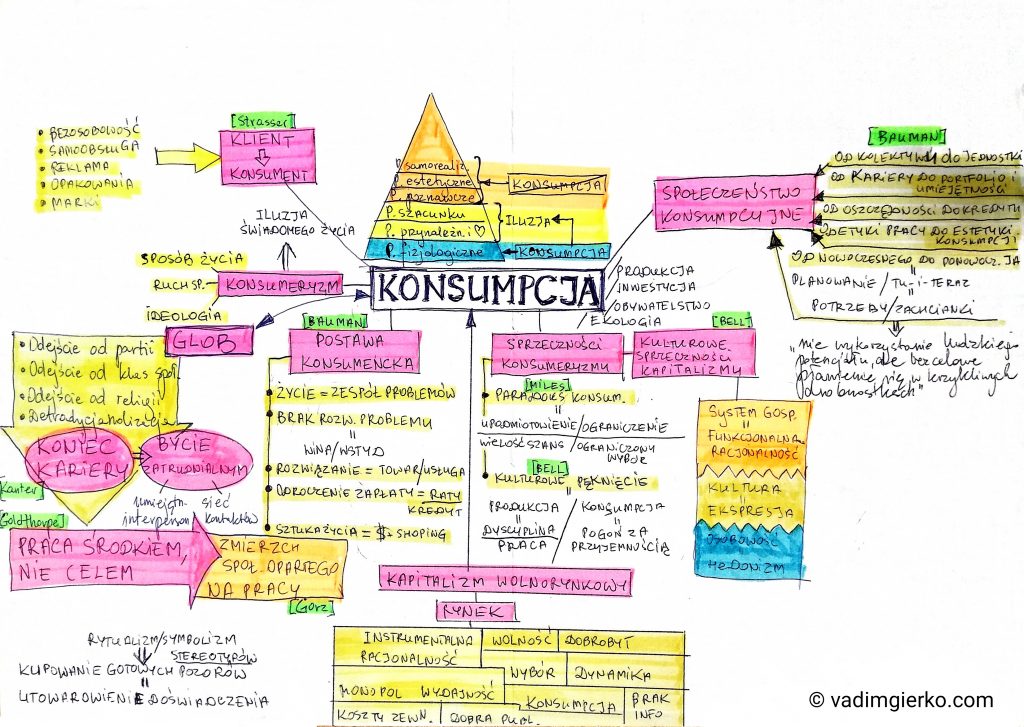 [Strasser]
KLIENT
KONSUMENT
• BEZOSOBOWOŚĆ
• SAMOOBSŁUGA
• REKLAMA
• OPAKOWANIA
• MARKI
ILUZJA
ŚWIADOMEGO ŻYCIA
SPOSÓB ŻYCIA
RUCH SP.
IDEOLOGIA
KONSUMERYZM
samorealiz
P. estetyczne
P. poznawcze
P. SZACUNKU
P. przynależni
P. fizjologiczne
KONSUMPCJA
ILUZJA
KONSUMPCJA
KONSUMPCJA
[BAUMAN]
SPOŁECZEŃSTWO
KONSUMPCYJNE
OD KOLEKTYWU do JEDNOSTKI
OD KARIERY DO PORTFOLIO i
UMIEJĘTNOŚCI
OD OSZCZĘDNOŚCI DO KREDYTU
OD ETYKI PRACY DO ESTETYKI
KONSUMPCJI
OD NOWOCZESNEGO DO PONOWOCZ.
PLANOWANIE / TU-i-TERAZ
POTRZEBY / ZACHCIANKI
"nie wykorzystanie ludzkiego
potencjału, ale bezcelowe
w krzykliwych
drobnostkach"
PRODUKCJA
INWESTYCJA
OBYWATELSTWO
EKOLOGIA
GLOB
• Odejście od partii
• Odejście od klas społ.
• Odejście od religii
• Detradycjonalizacja
KONIEC
KARIERY
BYCIE
ZATRUDNIALNYM
[Kanter]
umiejętn.
interperson
sieć
kontaktów
[Goldthorpe]
PRACA ŚRODKIEM,
NIE CELEM
ZMIERZCH
SPOŁ. OPARTEGO
NA PRACY
[Gorz]
RYTUALIZM/SYMBOLIZM
STEREOTYPÓW
KUPOWANIE GOTOWYCH POZORÓW
UTOWAROWIENIE DOŚWIADCZENIA
[BAUMAN]
POSTAWA
KONSUMENCKA
• ŻYCIE = ZESPÓŁ PROBLEMÓW
• BRAK ROZW. PROBLEMU
=
WINA/WSTYD
• ROZWIĄZANIE = TOWAR/USŁUGA
• ODROCZENIE ZAPŁATY = RATY
KREDYT
• SZTUKA ŻYCIA = $ + SHOPING
SPRZECZNOŚCI
KONSUMERYZMU
[MILES]
• PARADOKS KONSUM.
UPODMIOTOWIENIE/OGRANICZENIE
WIELOŚĆ SZANS / OGRANICZONY
WYBÓR
[BELL]
• KULTUROWE PĘKNIĘCIE
PRODUKCJA / KONSUMPCJA
= =
DYSCYPLINA
PRACA
POGOŃ ZA
PRZYJEMNOŚCIĄ
[BELL]
KULTUROWE
SPRZECZNOŚCI
KAPITALIZMU
SYSTEM GOSP.
=
FUNKCJONALNA
RACJONALNOŚĆ
KULTURA
=
EKSPRESJA
OSOBOWOŚĆ
=
HEDONIZM
KAPITALIZM WOLNORYNKOWY
RYNEK
INSTRUMENTALNA
RACJONALNOŚĆ
WOLNOŚĆ
DOBROBYT
WYBÓR
DYNAMIKA
MONOPOL
WYDAJNOŚĆ
KONSUMPCJA
BRAK
INFO
KOSZTY ZEWN.
DOBRA PUBL.
© vadimgierko.com